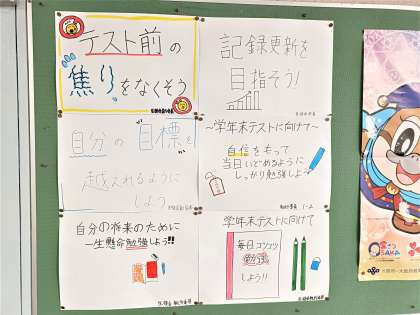 テスト前の
焦りをなくそう
記録更新を
目指そう!
自分の"目標"を
越えれるように
しよう
～学年末テストに向けて～
自信をもって
当日いどめるように
しっかり勉強しよ～
1-2
自分の将来のために
一生懸命勉強しよう!!
学年末テストに向けて
毎日コツコツ
勉強
しよう!!
OSAKA